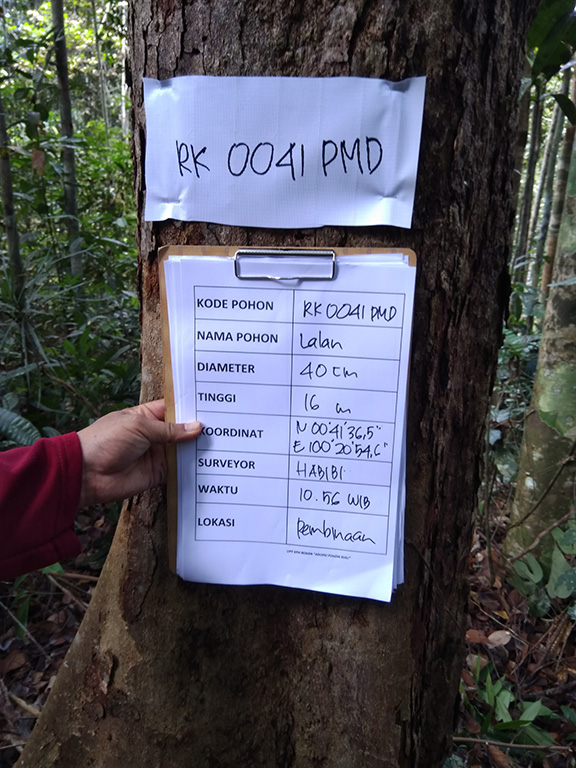 RK 0041 PMD
KODE POHON RK 0041 PMD
NAMA POHON Lalan
DIAMETER 40 cm
TINGGI 16 m
KOORDINAT N 00°41'36,5"
E 100°20'54,6"
SURVEYOR HABIBI
WAKTU 10.56 WIB
LOKASI Pembinaan